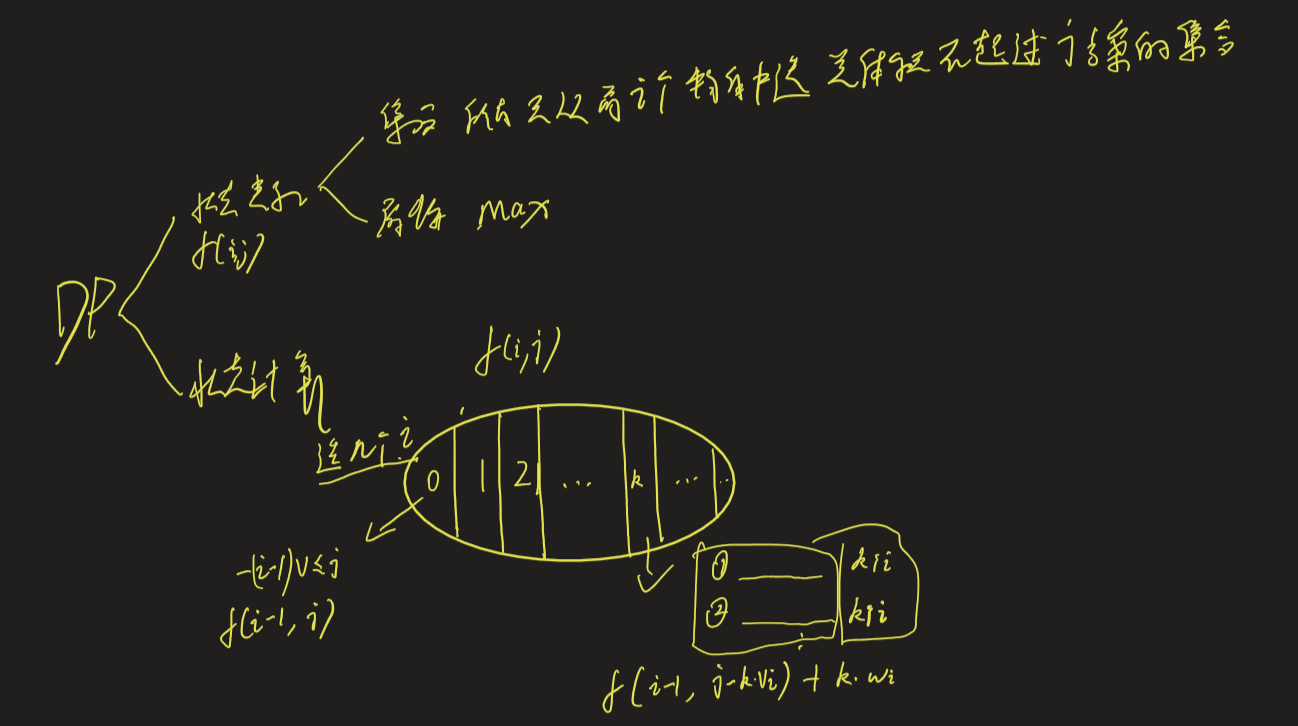 集合 所有只从前i个物品中选 总体积不超过j方案的集合
状态表示
f(i,j)
属性 Max
DP
状态计算
f(i,j)
选几个i
0 1 2 ... k ... ..
-(i-1) V≤j
f(i-1, j)
① k个i
② k个i
f(i-1, j-k·vi) + k·wi